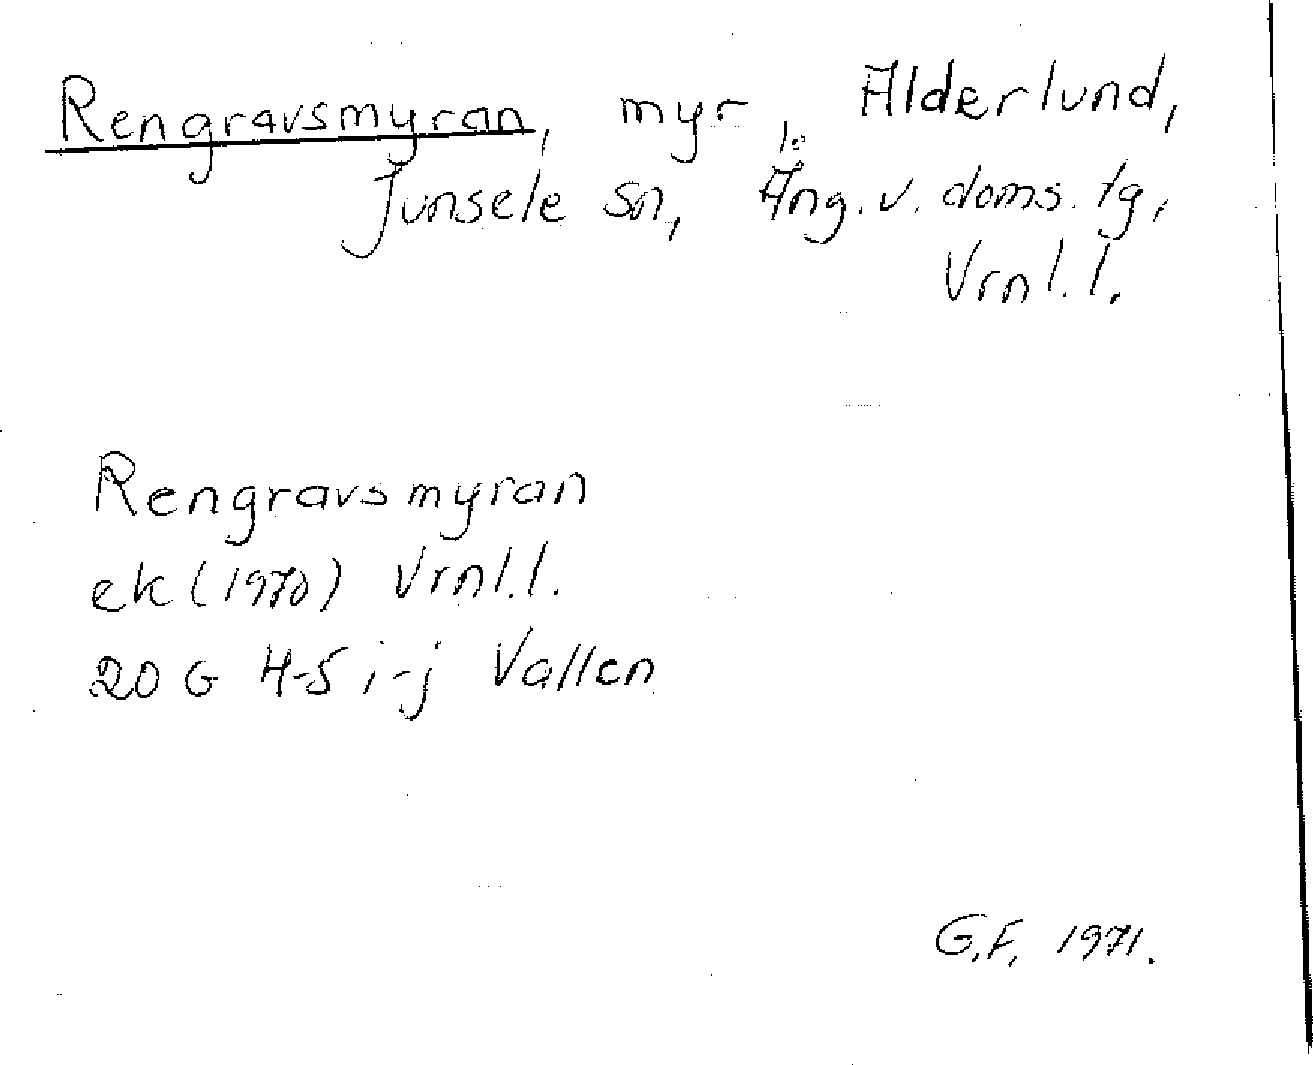 Rengravsmyran, myr, Alderlund,
Junsele sn, Ång. v. doms. tg,
Vrnl. l.
Rengravsmyran
ek (1970) Vrnl. l.
20 G 4-5 i-j Vallen
G.F. 1971.